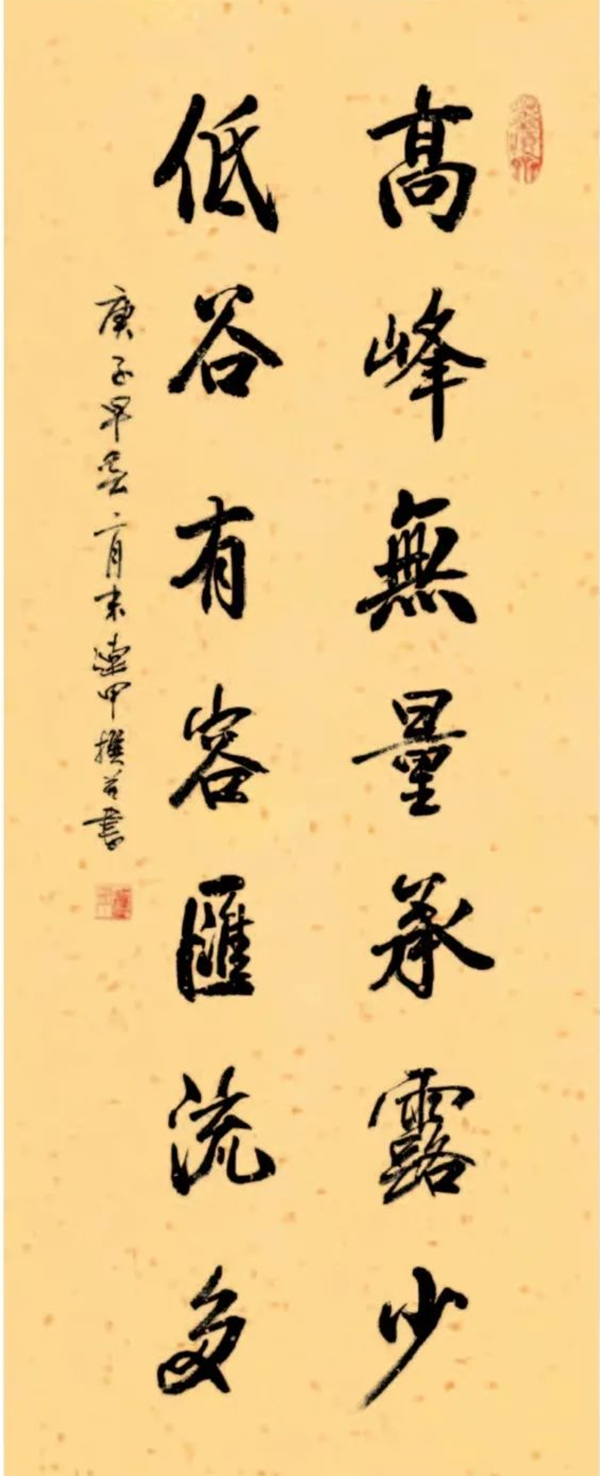 高峰無量承露少
低谷有容匯流多
庚子早春二月末連甲撰並書